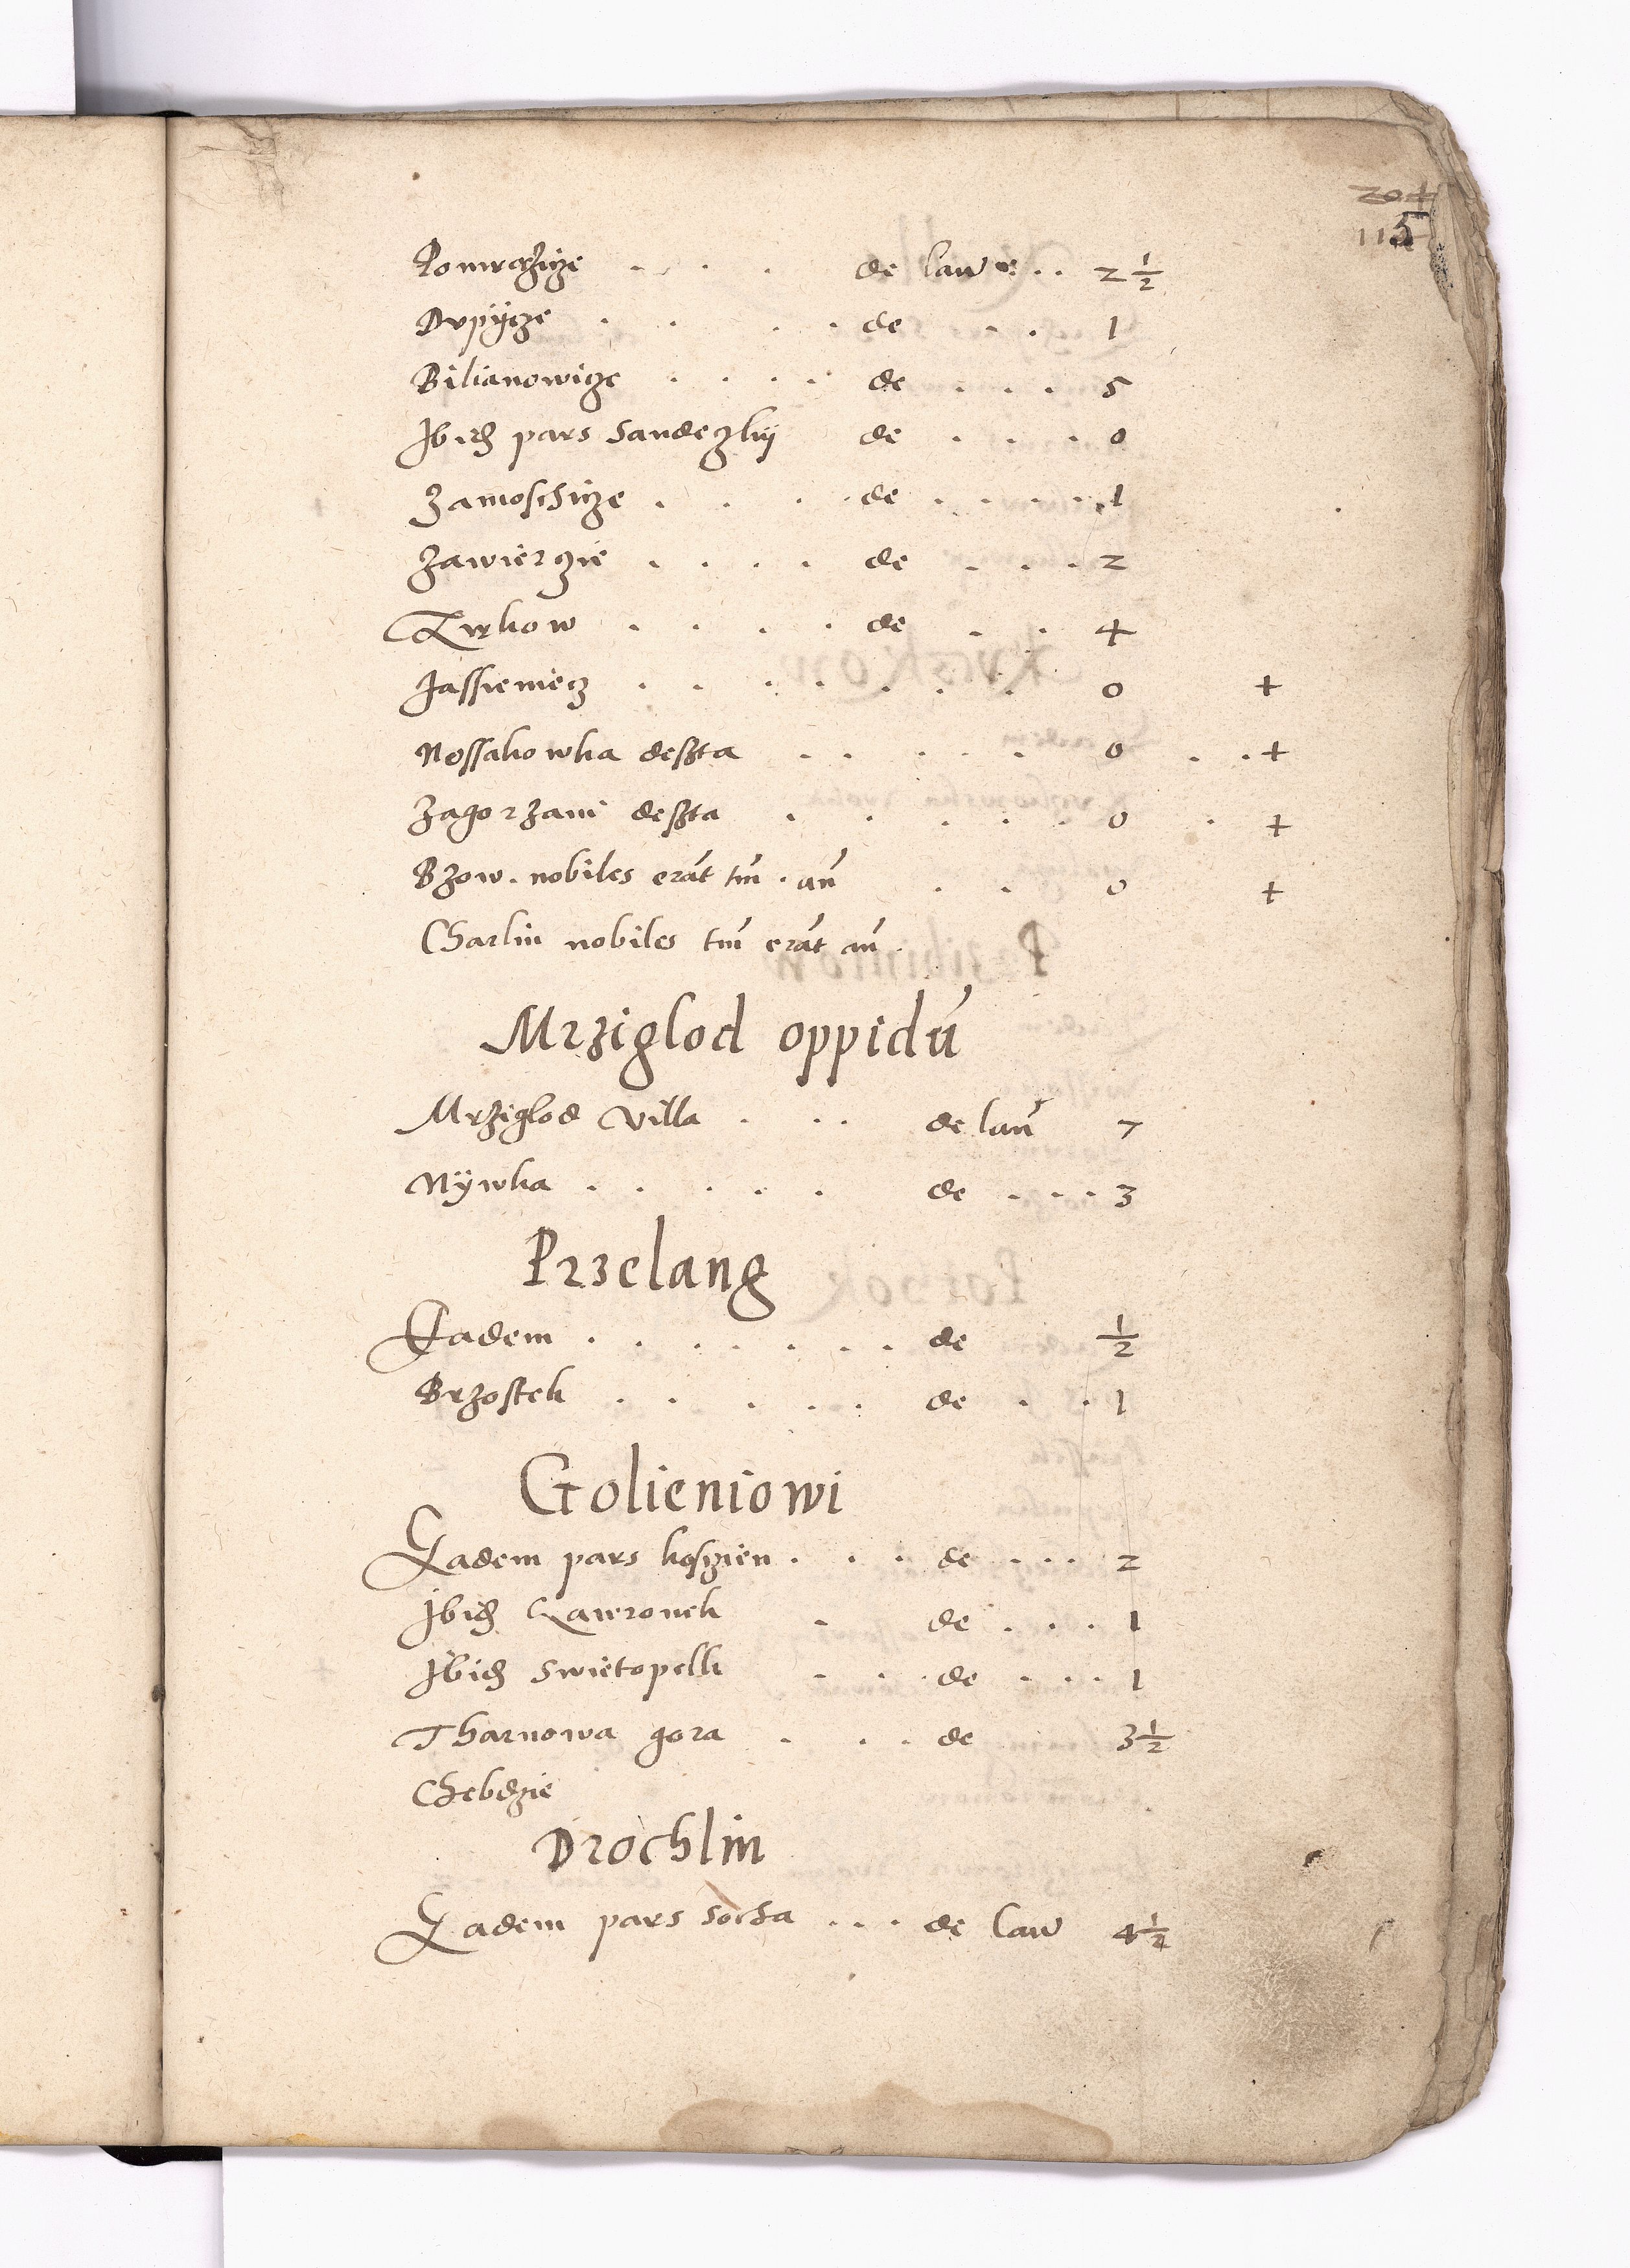 204
115
Pomrozicze . . . de lan . . 2 1/2
Dupijcze . . . . de . . 1
Bilianowicze . . . . de . . . 5
Ibidem pars Sandeczkij de . . . 0
Zamoschicze . . . . de . . . . 1
Zawierczie . . . . de . . . 2
Kyrkow . . . . de . . 4
Jassieniecz . . . . . . . 0 +
Nossakowka deserta . . . . . 0 . . +
Zagorzani deserta . . . . . 0 . +
Bzow . nobiles erāt tm̄ . an̄ . . 0 +
Charlin nobiles tm̄ erāt an̄ .
Mrziglod oppidū
Mrziglod villa . . . de lan̄ 7
Nÿwka . . . . . de . . . 3
Przelang
Eadem . . . . . . . de 1/2
Brzostek . . . . . de . . 1
Golieniowi
Eadem pars koszien . . . de . . . 2
Ibidem Gawronek . de . . . 1
Ibidem Swietopelk . . . de . . . . 1
Tharnowa gora . . . de 3 1/2
Chebdzie
Drochlin
Eadem pars Socha . . . de lan 4 1/2